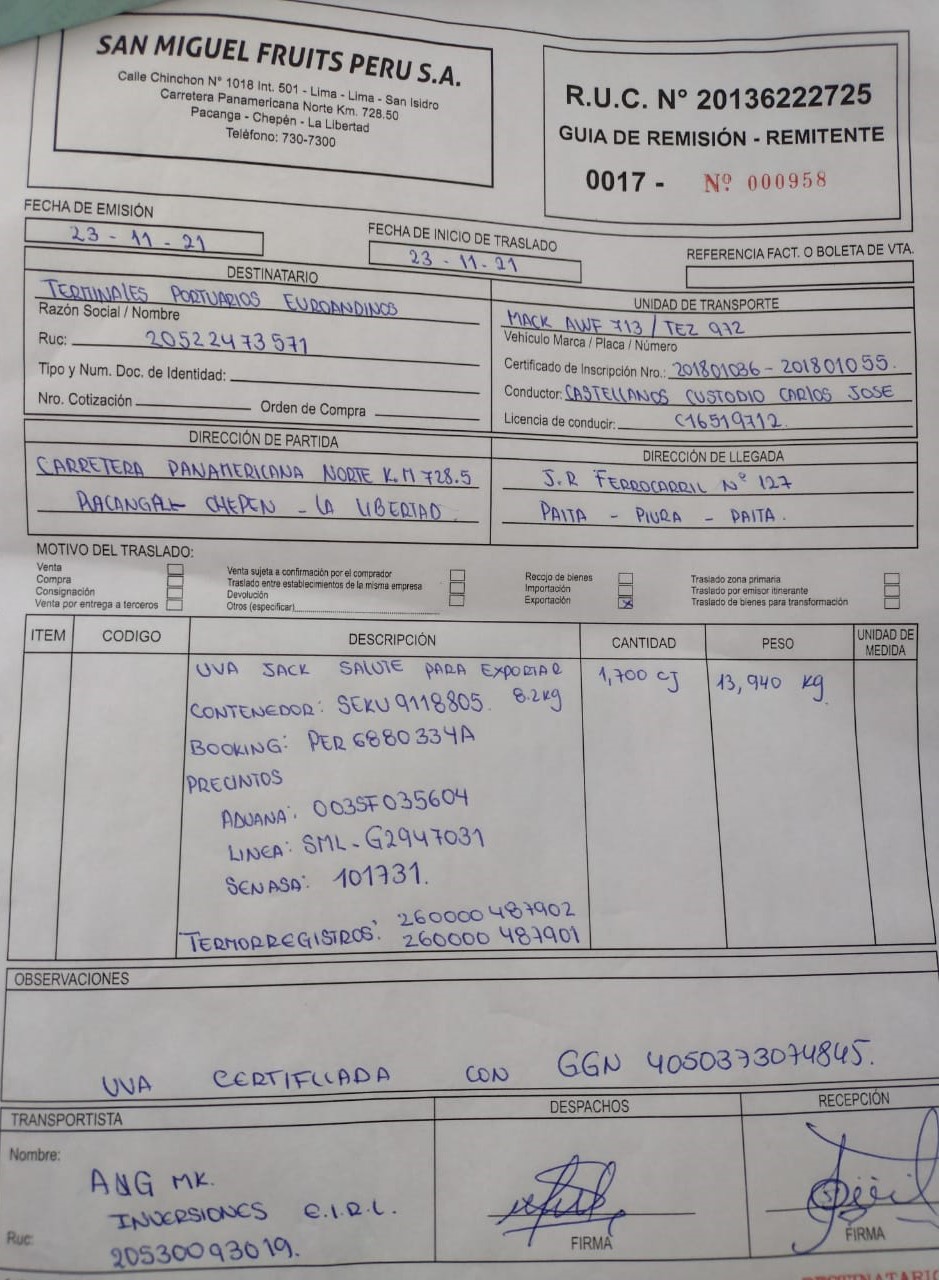 SAN MIGUEL FRUITS PERU S.A.
Calle Chinchon N° 1018 Int. 501 - Lima - Lima - San Isidro
Carretera Panamericana Norte Km. 728.50
Pacanga - Chepén - La Libertad
Teléfono: 730-7300
R.U.C. N° 20136222725
GUIA DE REMISIÓN - REMITENTE
0017 - Nº 000958
FECHA DE EMISIÓN
23 - 11 - 21
FECHA DE INICIO DE TRASLADO
23 - 11 - 21
REFERENCIA FACT. O BOLETA DE VTA.
DESTINATARIO
TERMINALES PORTUARIOS EUROANDINOS
Razón Social / Nombre
Ruc: 20522473571
Tipo y Num. Doc. de Identidad:
Nro. Cotización Orden de Compra
UNIDAD DE TRANSPORTE
MACK AWF 713 / TEZ 972
Vehículo Marca / Placa / Número
Certificado de Inscripción Nro.: 201801036 - 201801055.
Conductor: CASTELLANOS CUSTODIO CARLOS JOSE
Licencia de conducir: C16519712.
DIRECCIÓN DE PARTIDA
CARRETERA PANAMERICANA NORTE K.M 728.5
CHEPEN - LA LIBERTAD.
DIRECCIÓN DE LLEGADA
J.R FERROCARRIL Nº 127
PAITA - PIURA - PAITA.
MOTIVO DEL TRASLADO:
Venta
Compra
Consignación
Venta por entrega a terceros
Venta sujeta a confirmación por el comprador
Traslado entre establecimientos de la misma empresa
Devolución
Otros (especificar)
Recojo de bienes
Importación
Exportación X
Traslado zona primaria
Traslado por emisor itinerante
Traslado de bienes para transformación
ITEM CODIGO DESCRIPCIÓN CANTIDAD PESO UNIDAD DE MEDIDA
UVA JACK SALUTE PARA EXPORTAR 1,700 CJ 13,940 Kg
CONTENEDOR: SEKU 9118805. 8.2kg
BOOKING: PER 6880334A
PRECINTOS
ADUANA: 003SF035604
LINEA: SML-G2947031
SENASA: 101731.
TERMORREGISTROS: 260000487902
260000487901
OBSERVACIONES
UVA CERTIFICADA CON GGN 4050373074845.
TRANSPORTISTA
Nombre:
ANG MK.
INVERSIONES E.I.R.L.
Ruc: 20530093019.
DESPACHOS
FIRMA
RECEPCIÓN
FIRMA